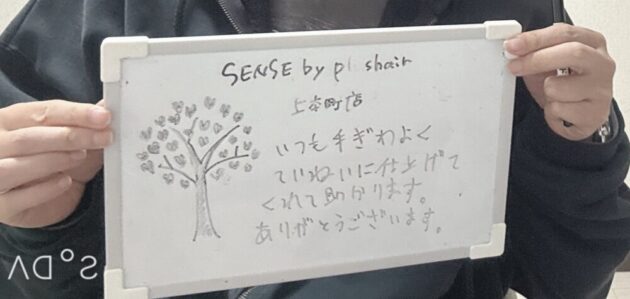 SENSE by pl shair
上本町店
いつも手ぎわよく
ていねいに仕上げて
くれて助かります。
ありがとうございます。